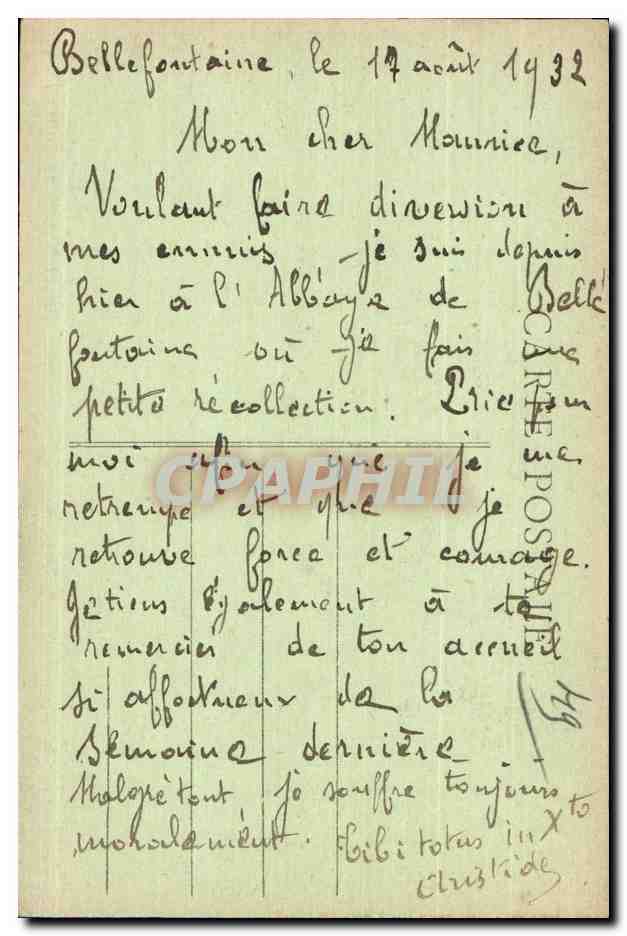 Bellefontaine, le 17 août 1932
Mon cher Maurice,
Voulant faire diversion à
mes ennuis je suis depuis
hier à l'Abbaye de Belle
fontaine où je fais une
petite récollection. Prie pour
moi afin que je me
retrempe et que je
retrouve force et courage.
Je tiens également à te
remercier de ton accueil
si affectueux de la
semaine dernière
Malgré tout, je souffre toujours
moralement. tibi totus in Xto
Aristide
CARTE POSTALE
49
CPAPHIL